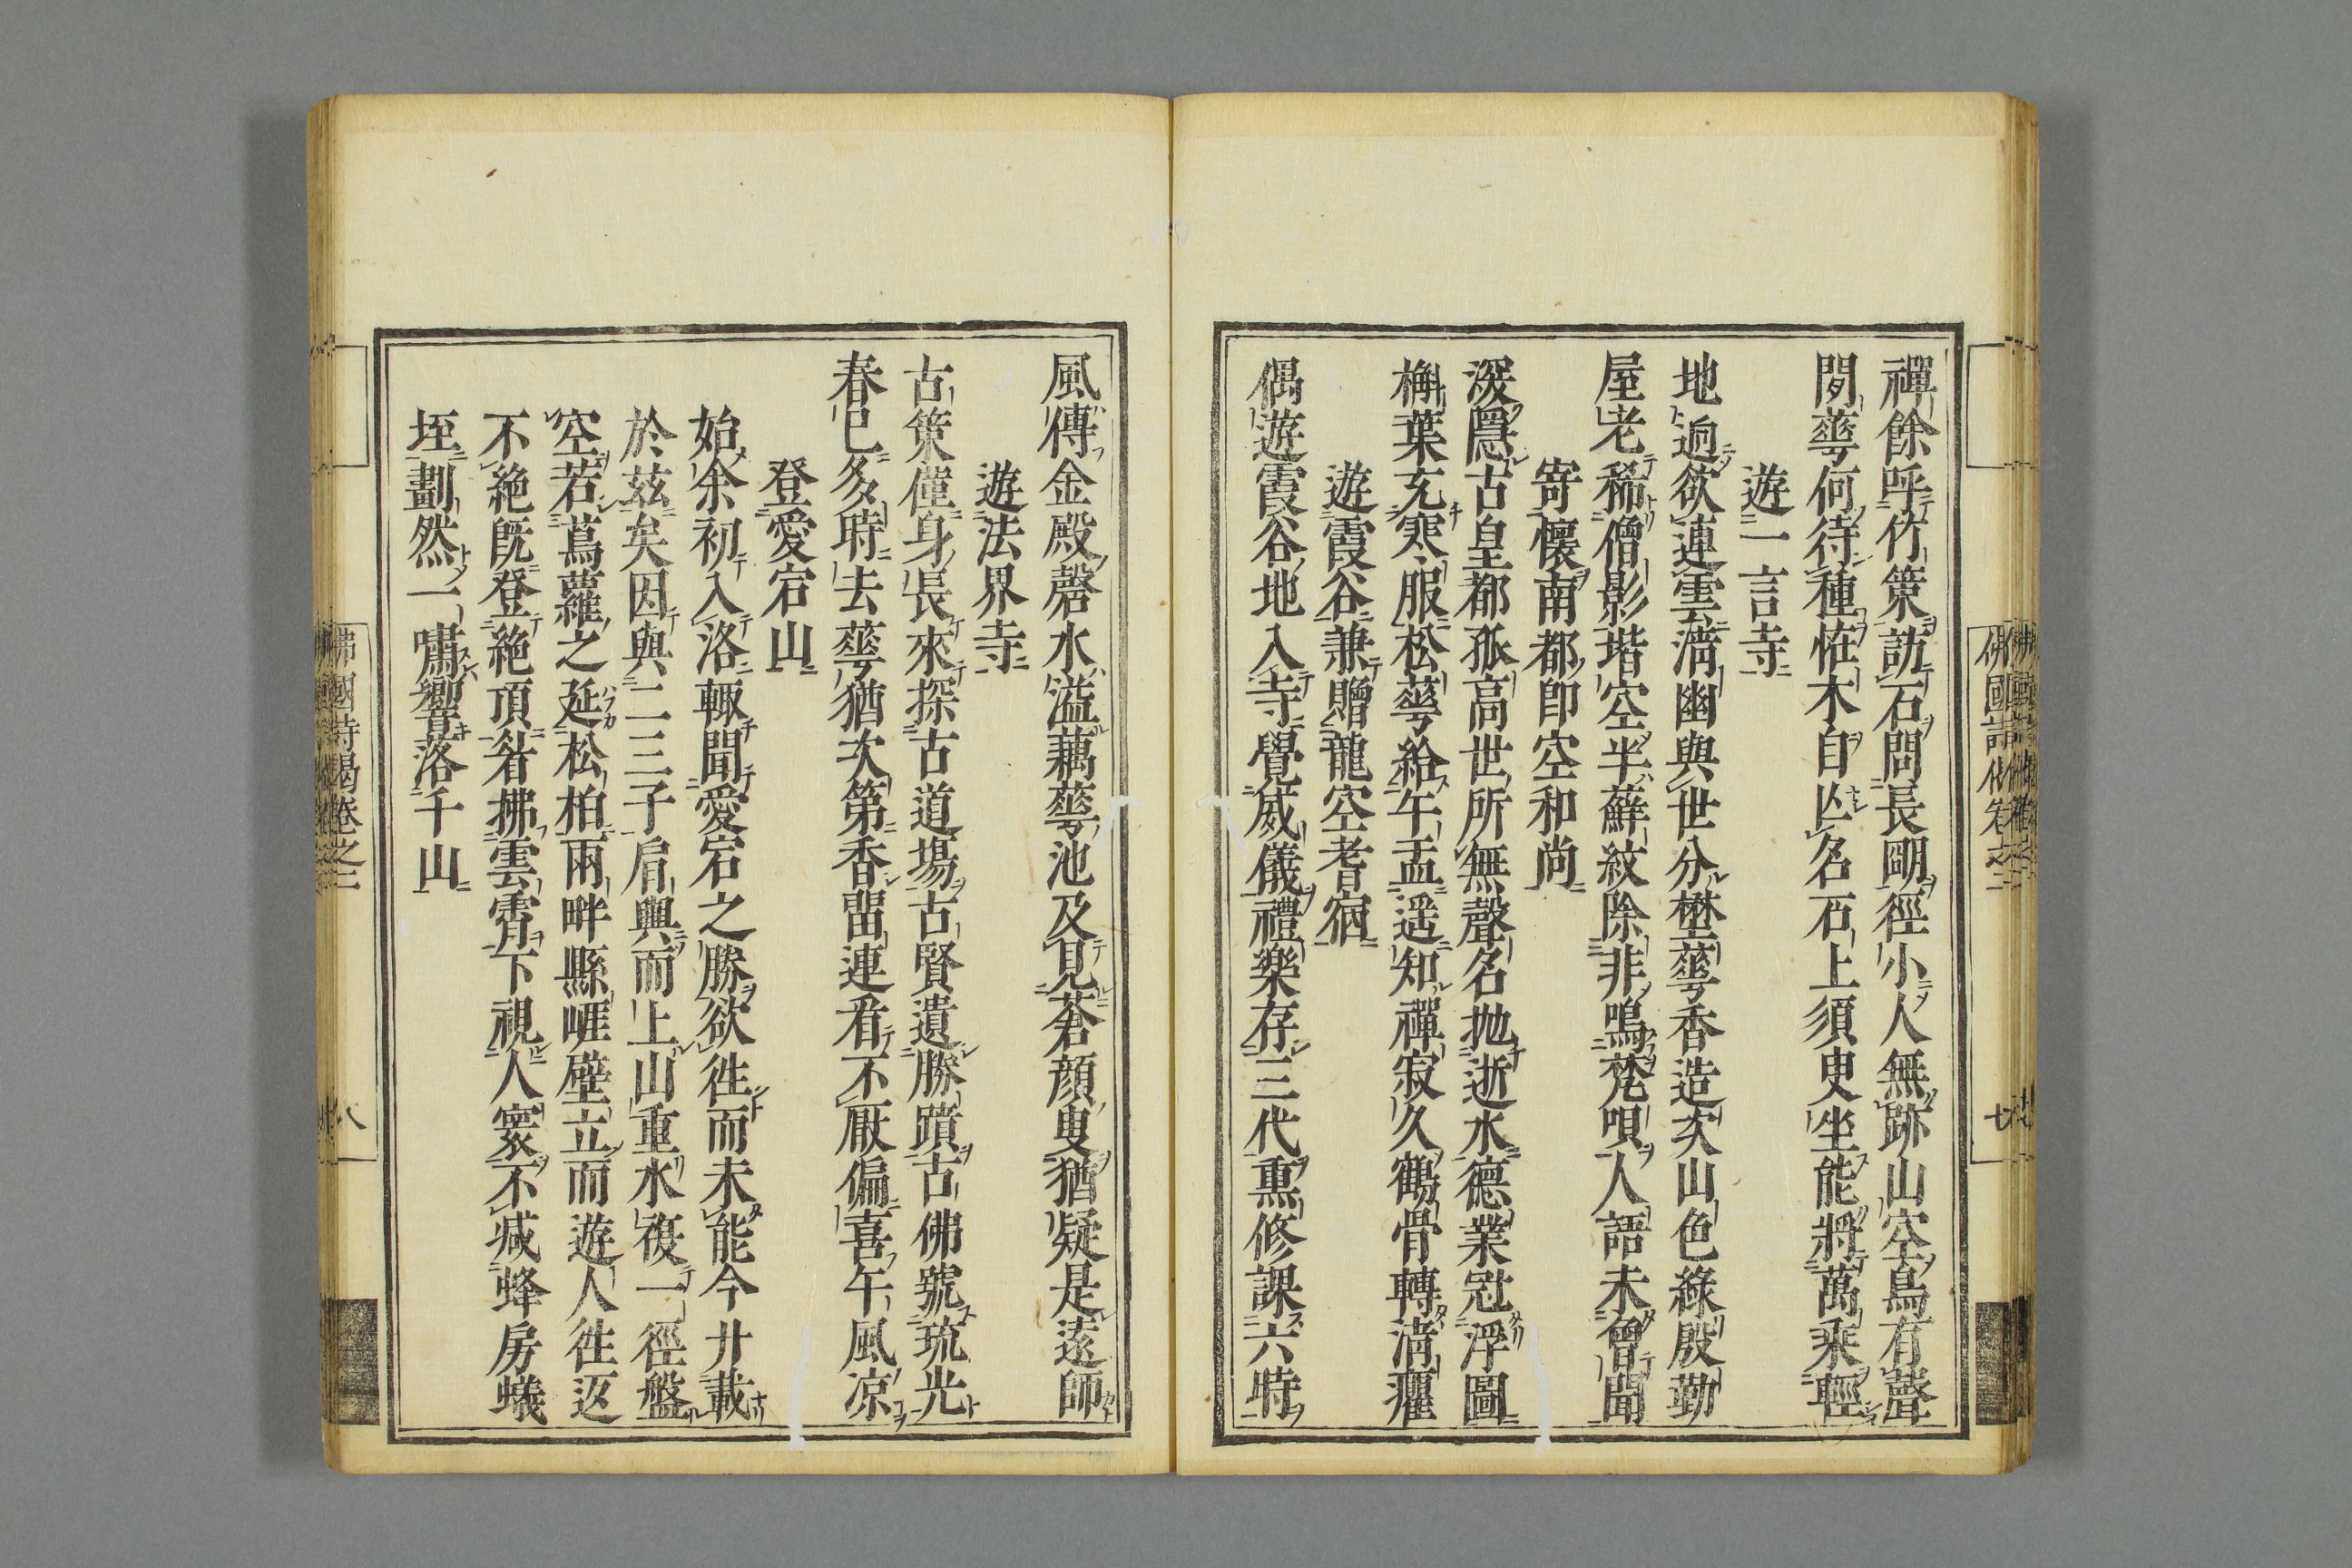 禪餘呼竹策訪石問長剛徑小人無跡山空鳥有聲
閒蕚何待種恠木自亡名石上須臾坐能將萬乘輕
遊一言寺
地迥欲連雲淸幽與世分埜蕚香造次山色綠殷勤
屋老稀僧影堦空半蘚紋除非鳴梵唄人語未曾聞
寄懷南都卽空和尚
深隱古皇都孤高世所無聲名抛逝水德業冠浮圖
槲葉充寒服松蕚給午盂遥知禪寂久鶴骨轉淸癯
遊霞谷兼贈龍空耆宿
偶遊霞谷地入寺覺威儀禮樂存三代熏修課六時
風傳金殿磬水溢藕蕚池及見蒼顔叟猶疑是遠師
遊法界寺
古策僅身長來探古道場古賢遺勝蹟古佛號琉光
春已多時去蕚猶次第香畱連看不厭偏喜午風凉
登愛宕山
始余初入洛輙聞愛宕之勝欲徃而未能今廾載
於茲矣因與二三子肩輿而上山重水複一徑盤
空若蔦蘿之延松柏兩畔縣崕壁立而遊人徃返
不絶旣登絶頂省拂雲霄下視人寰不減蜂房蟻
垤劃然一嘯響落千山
佛國詩偈卷之二
七
佛國詩偈卷之二
八